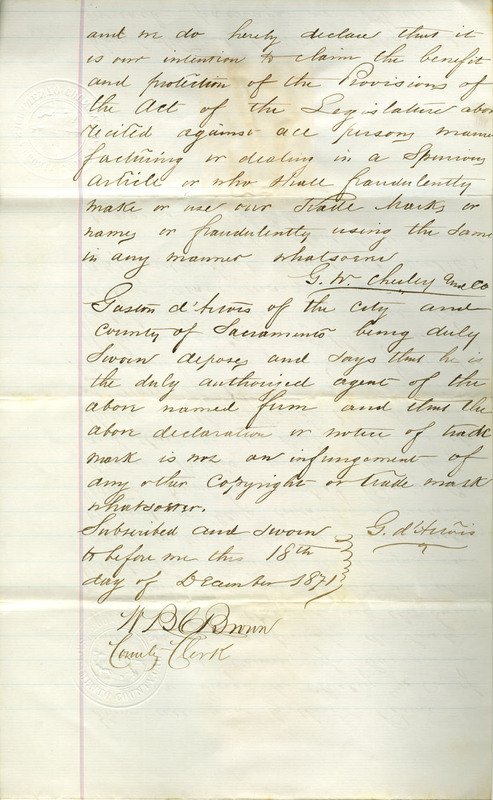 and we do hereby declare that it
is our intention to claim the benefit
and protection of the Provisions of
the Act of the Legislature abov
recited against all persons manu
facturing or dealing in a Spurious
article or who shall fraudulently
make or use our Trade Marks or
names or fraudulently using the same
in any manner whatsoever
G. W. Chesley and Co
Gaston d'Artois of the city and
County of Sacramento being duly
Sworn deposes and says that he is
the duly authorised agent of the
abov named firm and that the
abov declaration or notice of trade
mark is not an infringement of
any other Copyright or trade mark
whatsoever.
Subscribed and Sworn
G. d'Artois
to before me this 18th
day of December 1871
W B C Brown
County Clerk